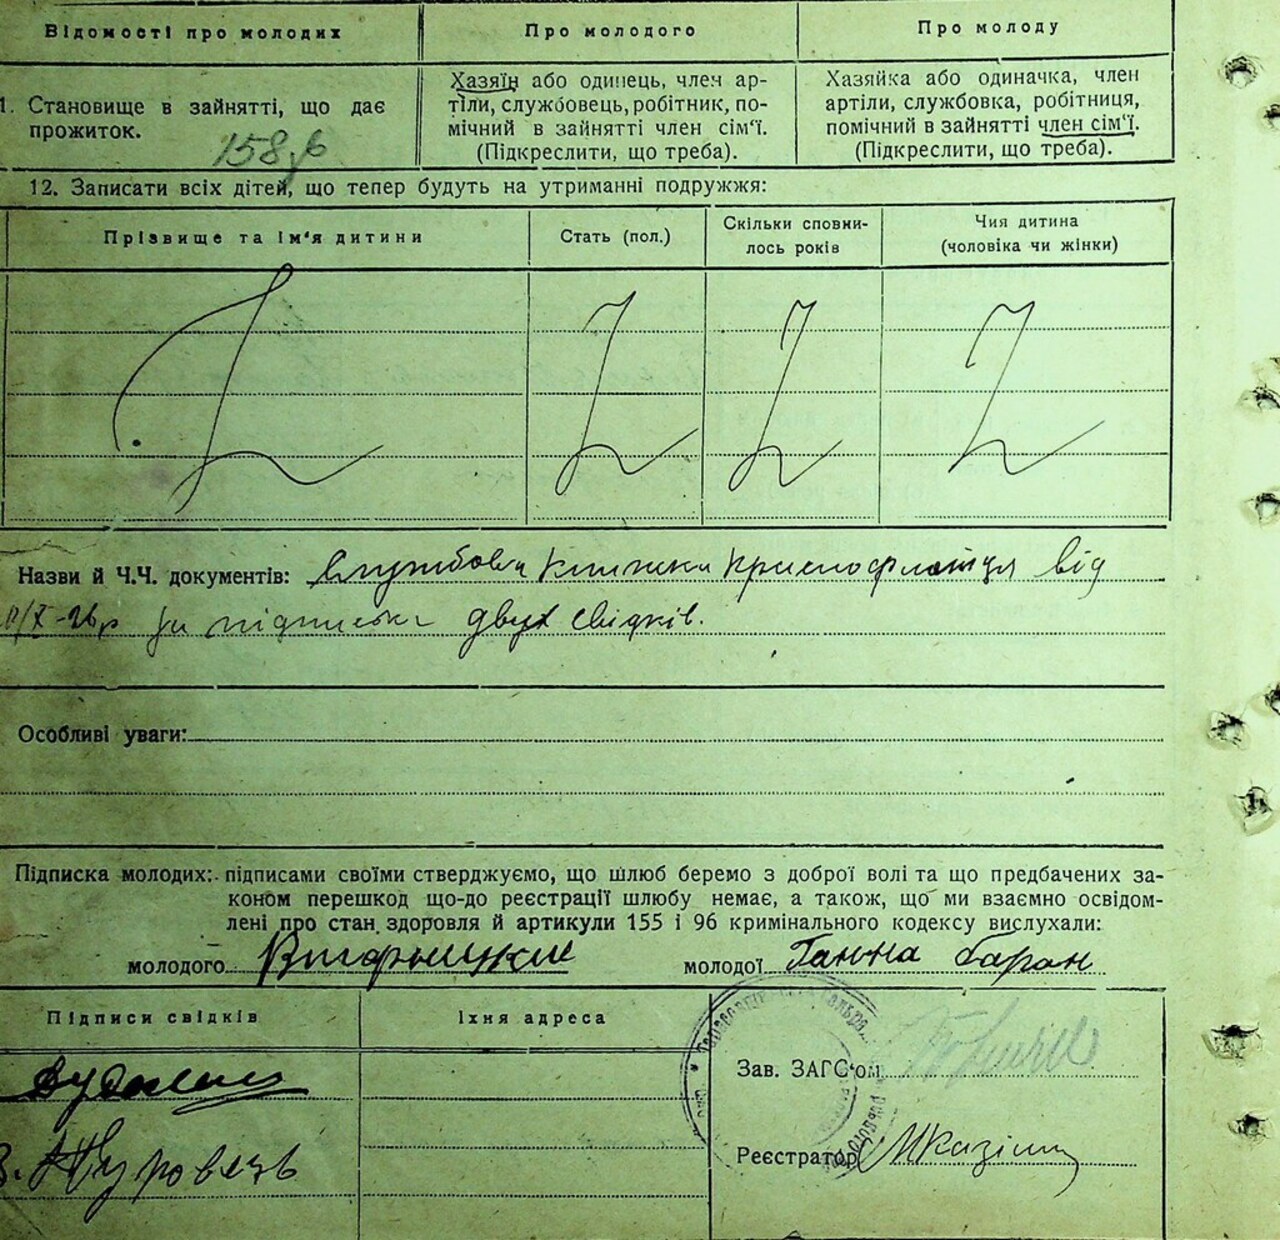 Відомості про молодих
Про молодого
Про молоду
1. Становище в зайнятті, що дає
прожиток.
158
Хазяїн або одинець, член ар-
тіли, службовець, робітник, по-
мічний в зайнятті член сім'ї.
(Підкреслити, що треба).
Хазяйка або одиначка, член
артіли, службовка, робітниця,
помічний в зайнятті член сім'ї.
(Підкреслити, що треба).
12. Записати всіх дітей, що тепер будуть на утриманні подружжя:
Прізвище та ім'я дитини
Стать (пол.)
Скільки сповни-
лось років
Чия дитина
(чоловіка чи жінки)
Назви й Ч.Ч. документів: Службова книжка Краснофлотця від
/X-26р за підписка двух свідків.
Особливі уваги:
Підписка молодих: підписами своїми стверджуємо, що шлюб беремо з доброї волі та що предбачених за-
коном перешкод що-до реєстрації шлюбу немає, а також, що ми взаємно освідом-
лені про стан здоровля й артикули 155 і 96 кримінального кодексу вислухали:
молодого
молодої Ганна Баран
Підписи свідків
Їхня адреса
Зав. ЗАГС'ом
Реєстратор